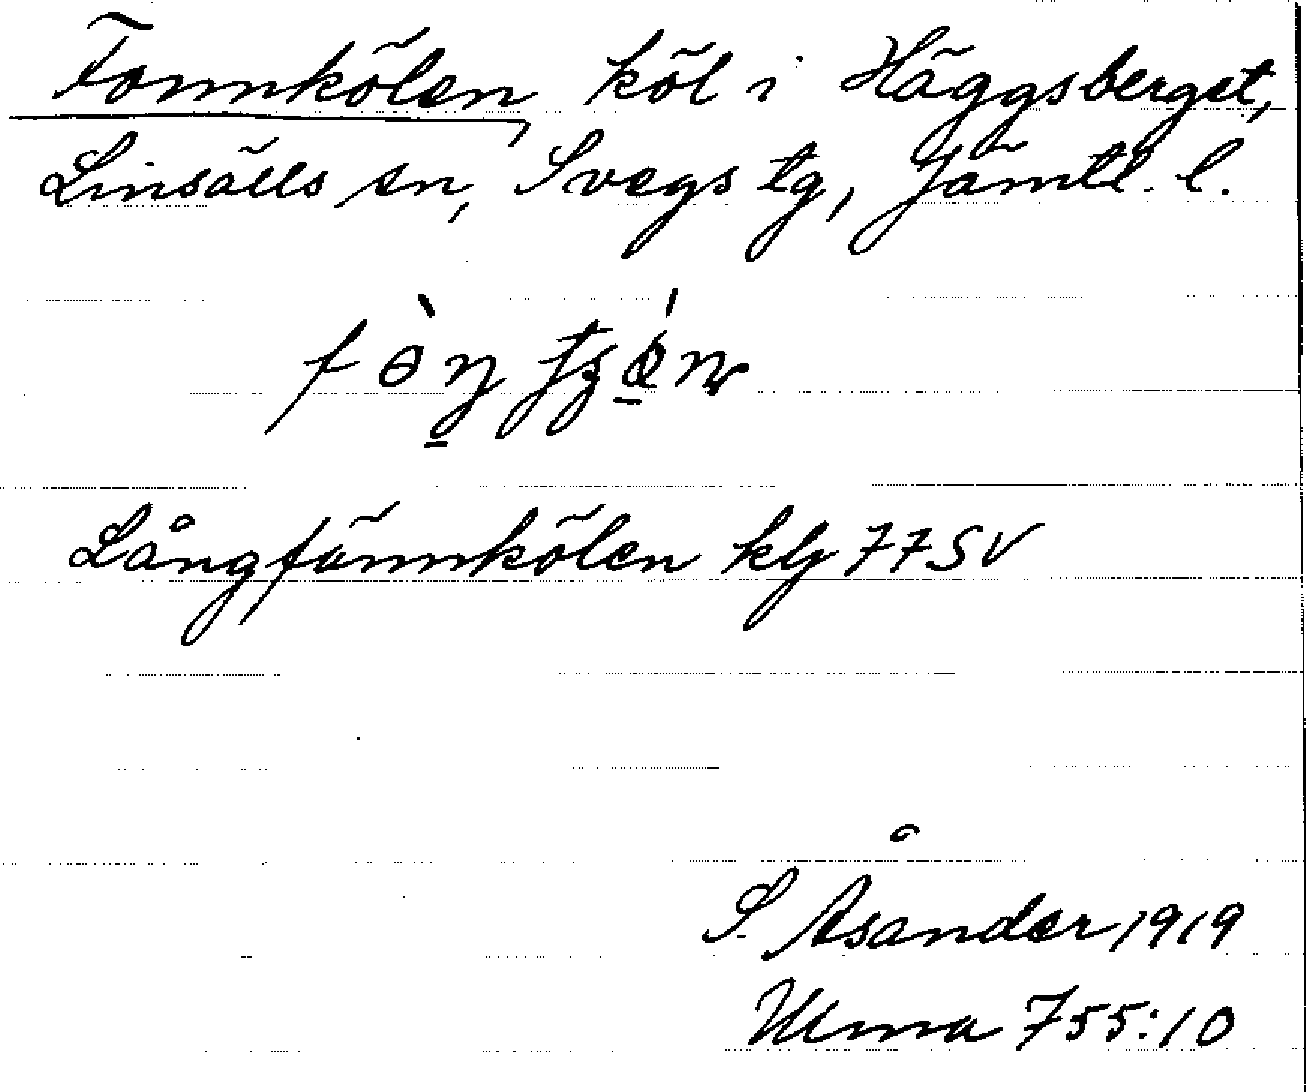 Fonnkölen, köl i Häggsberget,
Linsälls sn, Svegs tg, Jämtl. l.
Långfännkölen klj 77SV
S. Åsander 1919
Ulma 755:10